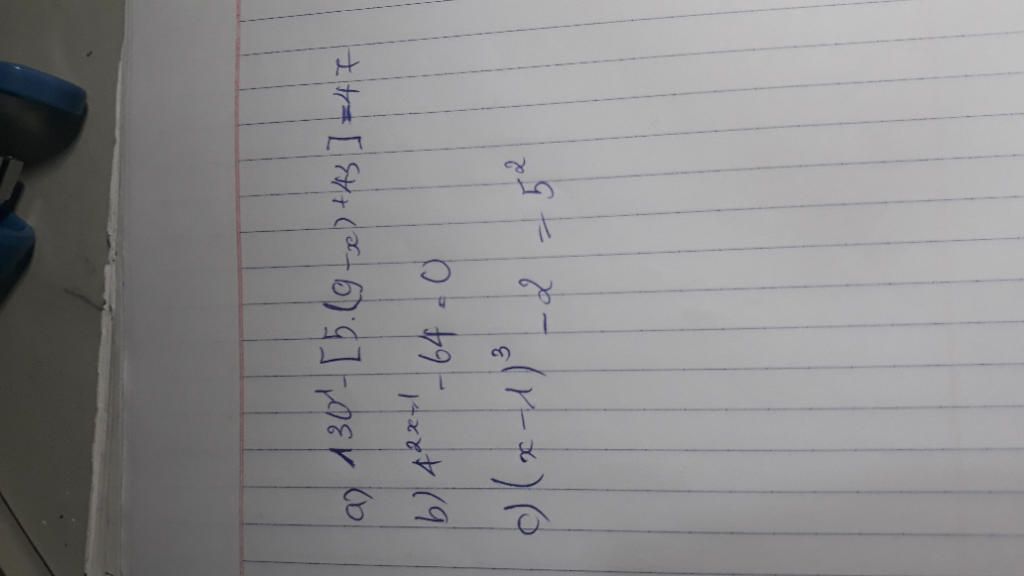 a) 130 - [5.(9-x)+43] = 47
b) 4^{2x-1} - 64 = 0
c) (x-1)^3 - 2 = 5^2